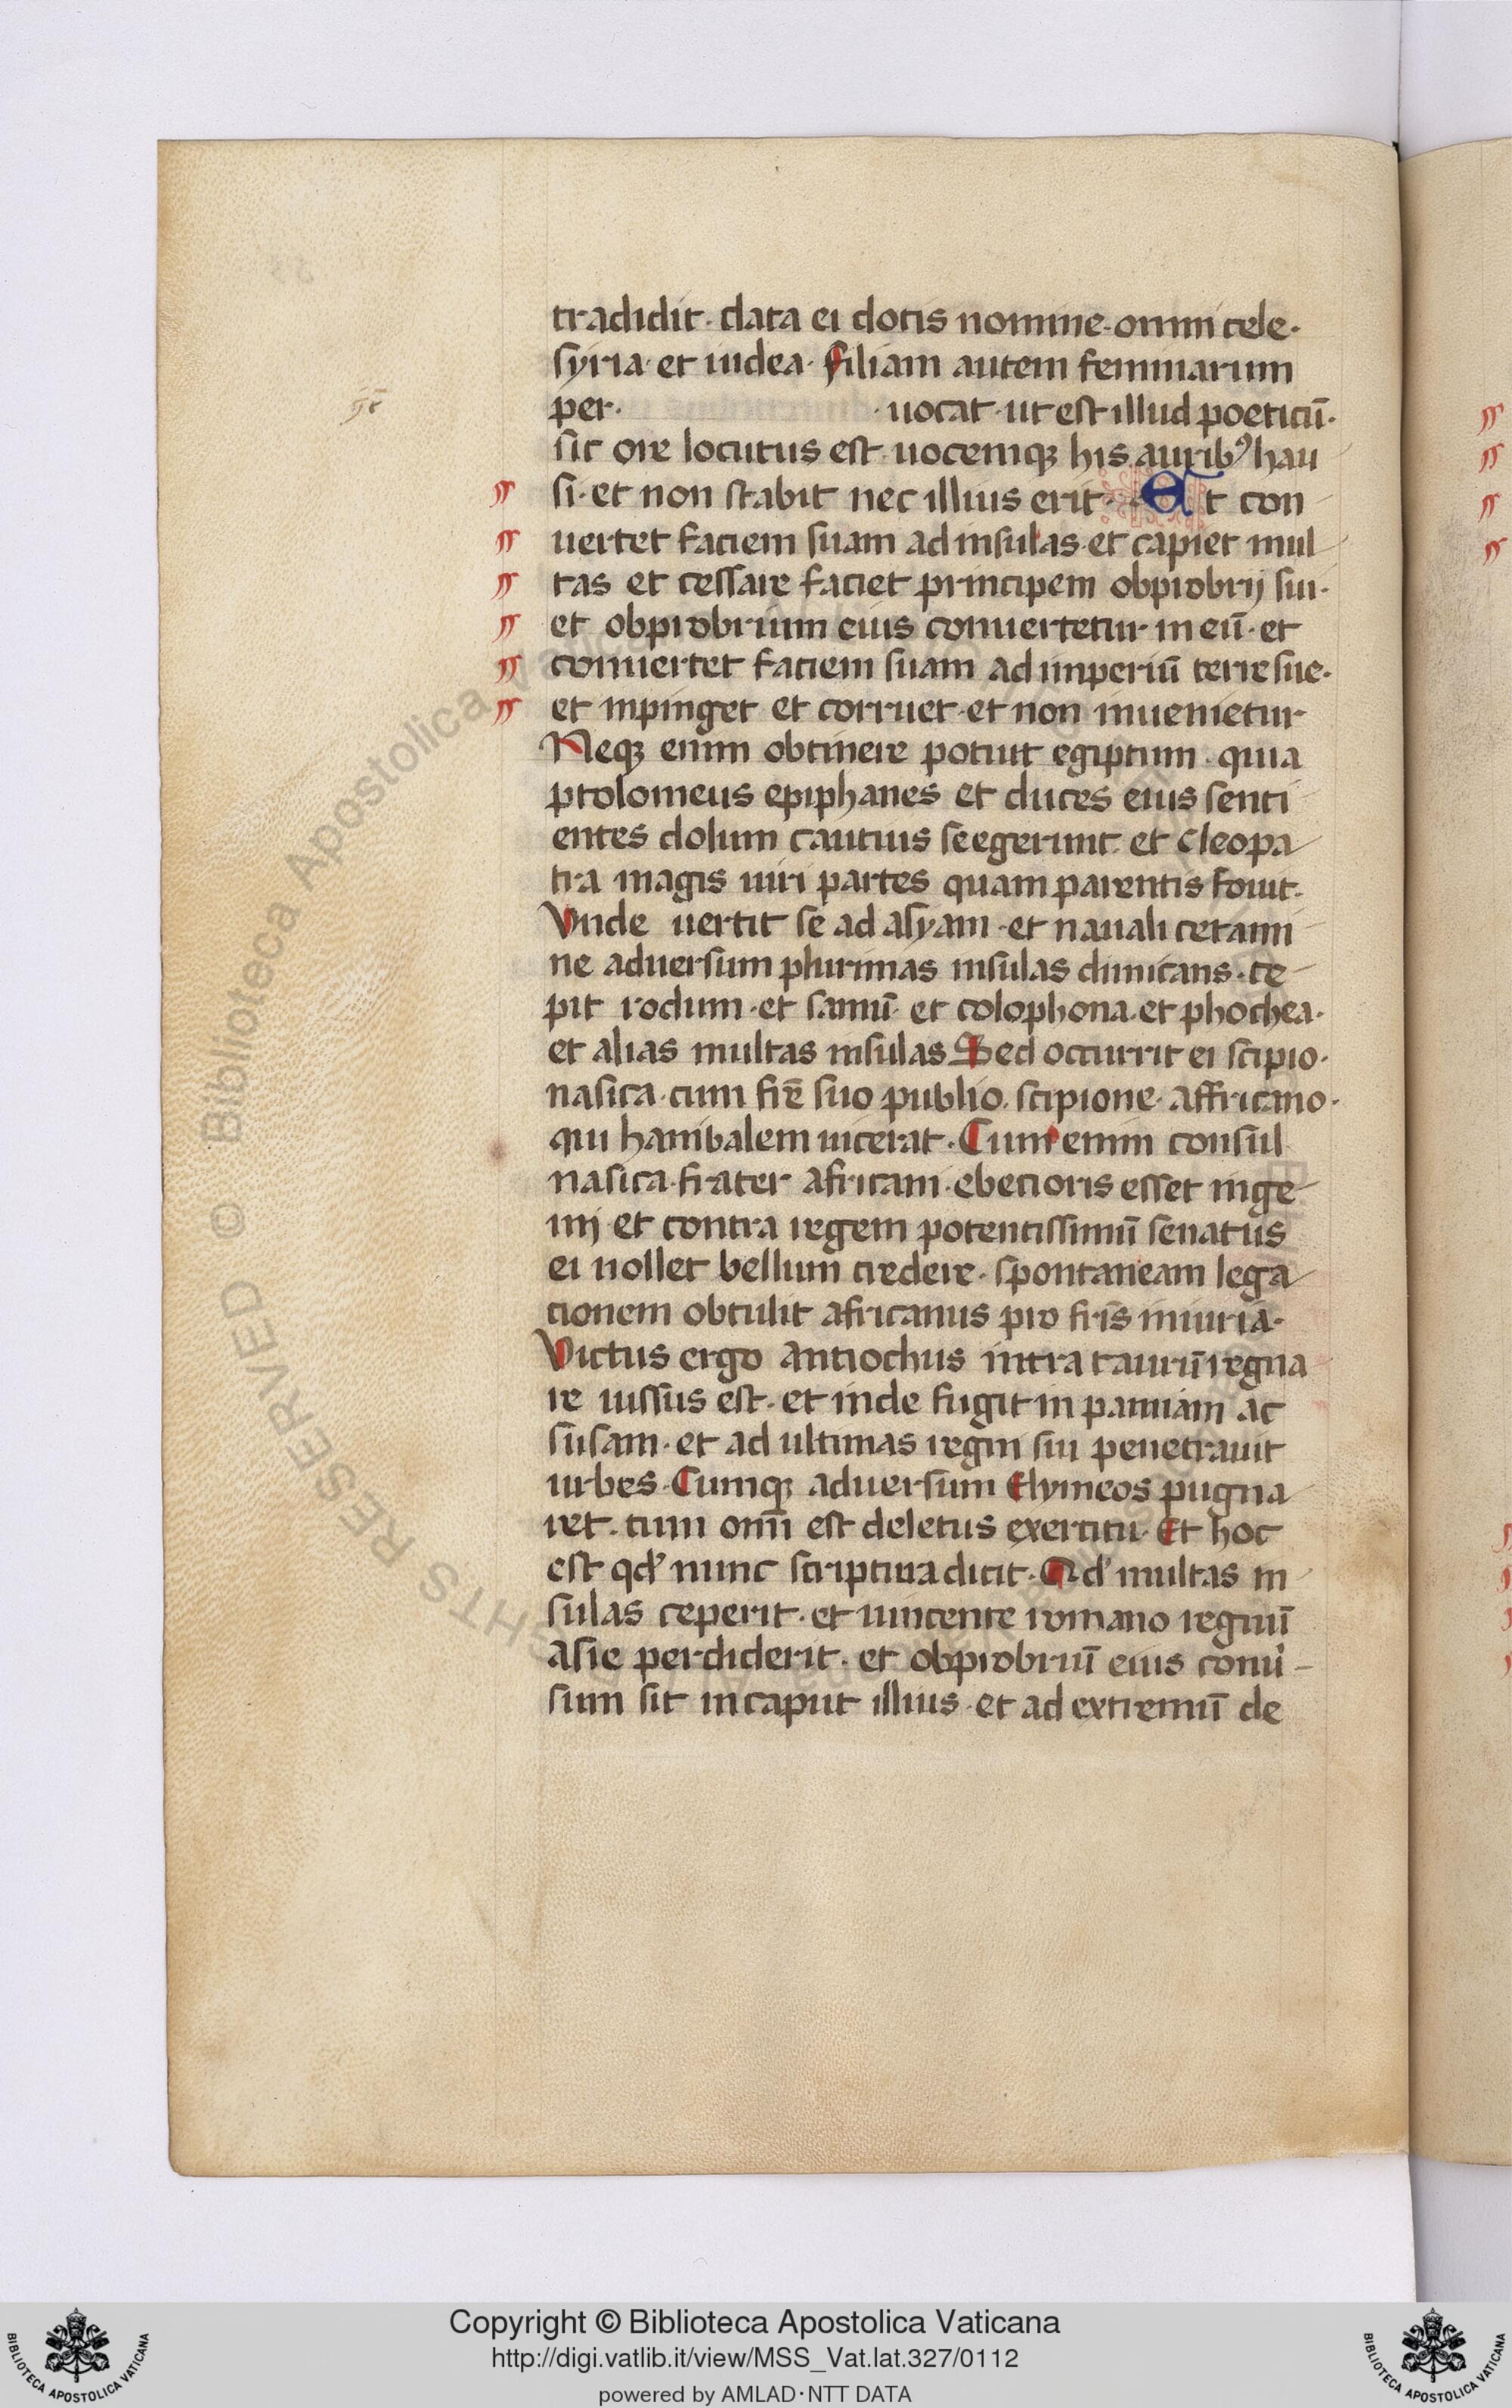 tradidit · data ei dotis nomine · omni cele ·
syria · et iudea · filiam autem feminarum
per · · uocat · ut est illud poeticū ·
sic ore locutus est · uocemqꝫ his auribꝰ hau
si · et non stabit nec illius erit · Et con
uertet faciem suam ad insulas · et capiet mul
tas et cessare faciet principem obprobrij sui ·
et obprobrium eius conuertetur in eū · et
conuertet faciem suam ad imperiū terre sue ·
et inpinget et corruet · et non inuenietur
Neqꝫ enim obtinere potuit egiptum · quia
ptolomeus epiphanes et duces eius senti
entes dolum cautius se egerunt · et cleopa
tra magis uiri partes quam parentis fouit ·
Vnde uertit se ad asyam · et nauali cetami
ne aduersum plurimas insulas dimicans · ce
pit rodum · et samū · et colophona · et phochea ·
et alias multas insulas Sed occurrit ei scipio ·
nasica · cum fr̄e suo publio · scipione · affricano ·
qui hanibalem uicerat · Cum enim consul
nasica · frater africani · ebecioris esset inge
nij et contra regem potentissimū senatus
ei nollet bellum credere · spontaneam lega
cionem obtulit africanus pro fr̄is iniuria ·
Victus ergo antiochus intra taurū regna
re iussus est · et inde fugit in pamiam ac
susam · et ad ultimas regni sui penetrauit
urbes · Cumqꝫ aduersum Elymeos pugna
ret · cum omī est deletus exercitu · Et hoc
est qd' nunc scriptura dicit · Qd' multas in
sulas ceperit · et uincente romano regnuū
asie perdiderit · et obprobriū eius conu
sum sit in caput illius · et ad extremū de
Copyright © Biblioteca Apostolica Vaticana
http://digi.vatlib.it/view/MSS_Vat.lat.327/0112
powered by AMLAD·NTT DATA
BIBLIOTECA APOSTOLICA VATICANA
BIBLIOTECA APOSTOLICA VATICANA